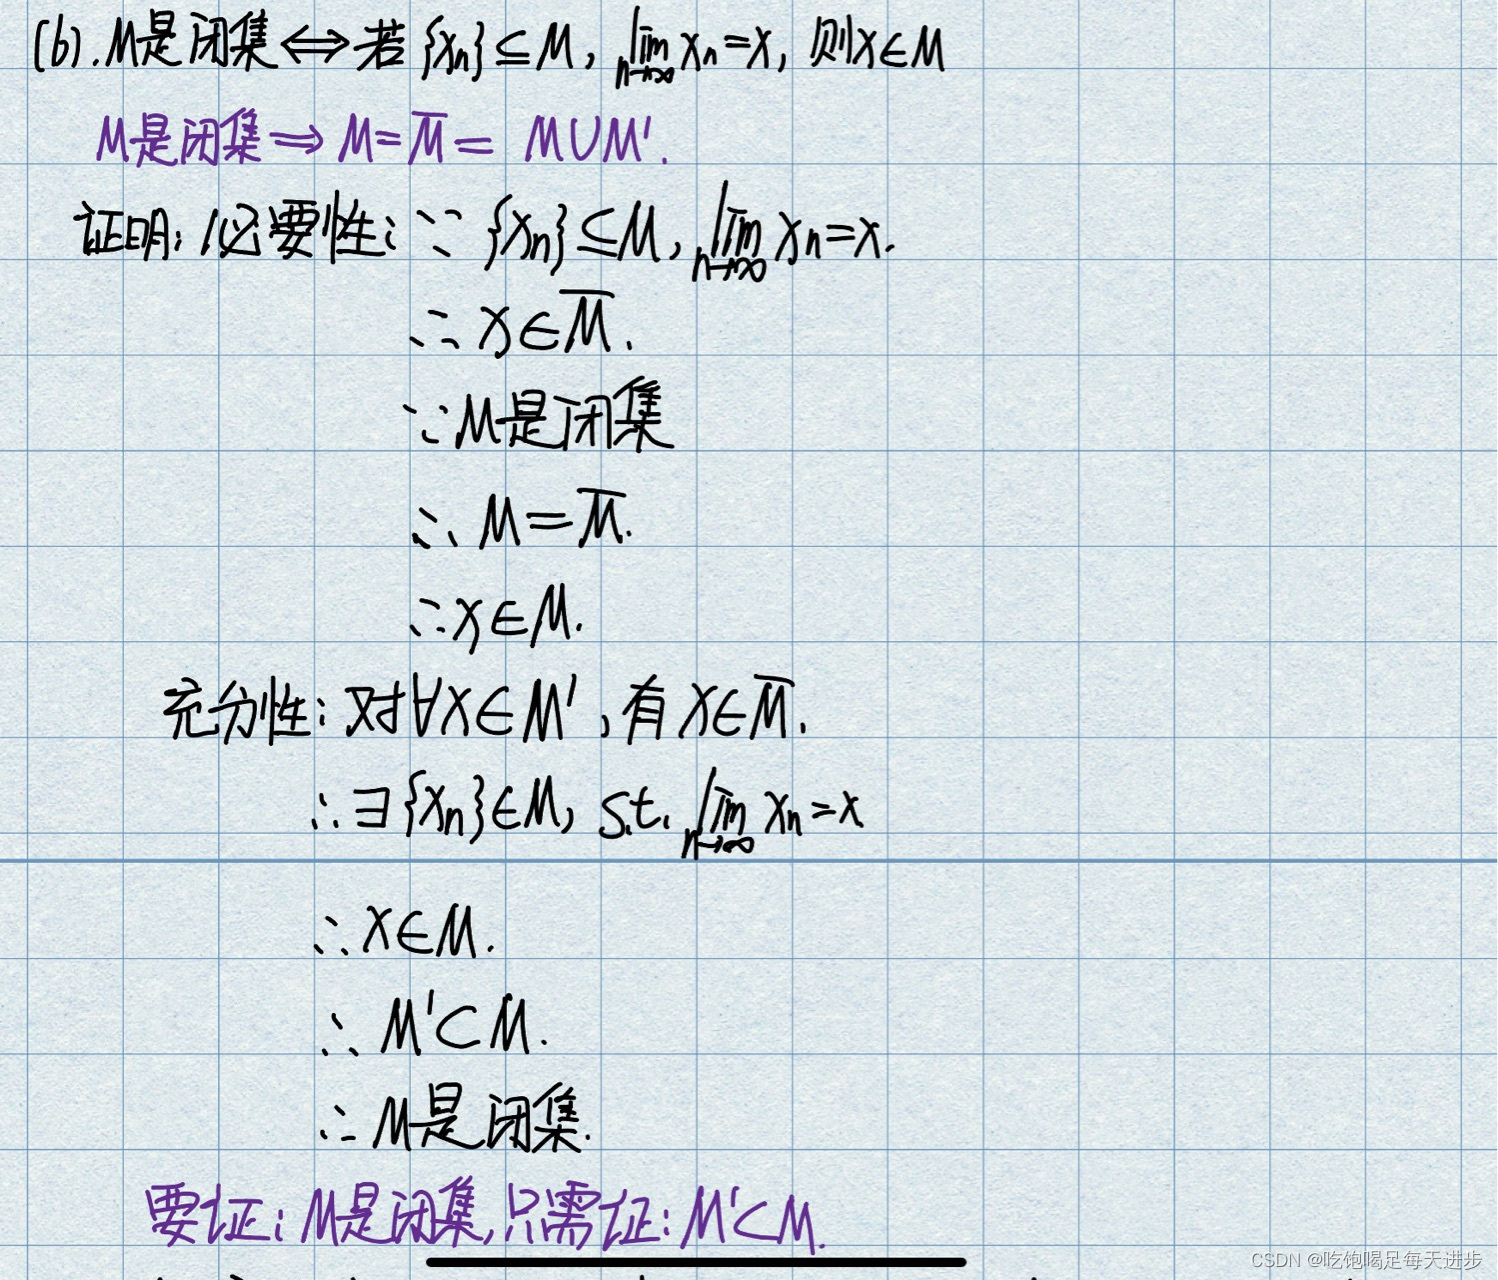 (b). M是闭集⟺若{xₙ}⊆M, lim_{n→∞} xₙ=x, 则x∈M
M是闭集⟹M=M̅=M∪M'.
证明: 必要性: ∵{xₙ}⊆M, lim_{n→∞} xₙ=x.
∴x∈M̅.
∵M是闭集
∴M=M̅.
∴x∈M.
充分性: 对∀x∈M', 有x∈M̅.
∴∃{xₙ}∈M, s.t. lim_{n→∞} xₙ=x
∴x∈M.
∴M'⊂M.
∴M是闭集.
要证: M是闭集, 只需证: M'⊂M.
CSDN @吃饱喝足每天进步